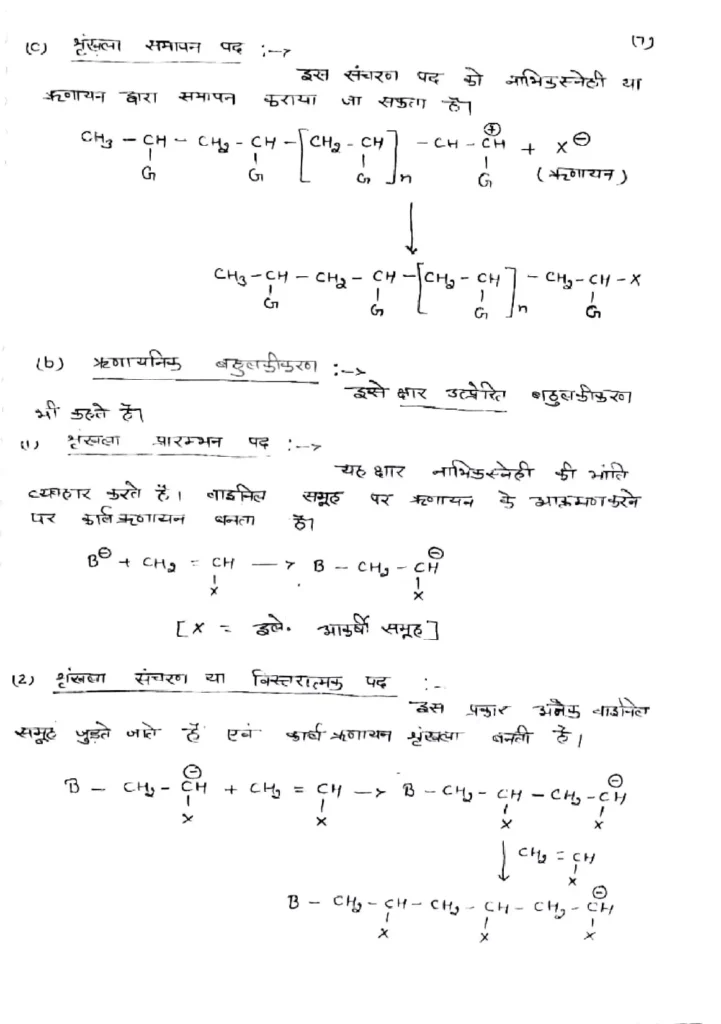 (7)
(c) श्रृंखला समापन पद :-→
इस संचरण पद को नाभिकस्नेही या
ऋणायन द्वारा समापन कराया जा सकता है।
CH₃ – CH – CH₂ – CH –[CH₂ – CH]ₙ – CH – CH⊕ + X⊖
G G G G (ऋणायन)
↓
CH₃ – CH – CH₂ – CH –[CH₂ – CH]ₙ – CH₂ – CH – X
G G G G
(b) ऋणायनिक बहुलकीकरण :-→
इसे क्षार उत्प्रेरित बहुलकीकरण
भी कहते हैं।
(1) श्रृंखला प्रारम्भन पद :-→
यह क्षार नाभिकस्नेही की भांति
व्यवहार करते है। वाइनिल समूह पर ऋणायन के आक्रमण करने
पर कार्बऋणायन बनता है।
B⊖ + CH₂ = CH → B – CH₂ – CH⊖
X X
[X = इले. आकर्षी समूह]
(2) श्रृंखला संचरण या विस्तारात्मक पद :-
इस प्रकार अनेक वाइनिल
समूह जुड़ते जाते हैं एवं कार्बऋणायन श्रृंखला बनती है।
B – CH₂ – CH⊖ + CH₂ = CH → B – CH₂ – CH – CH₂ – CH⊖
X X X X
↓ CH₂ = CH
X
B – CH₂ – CH – CH₂ – CH – CH₂ – CH⊖
X X X